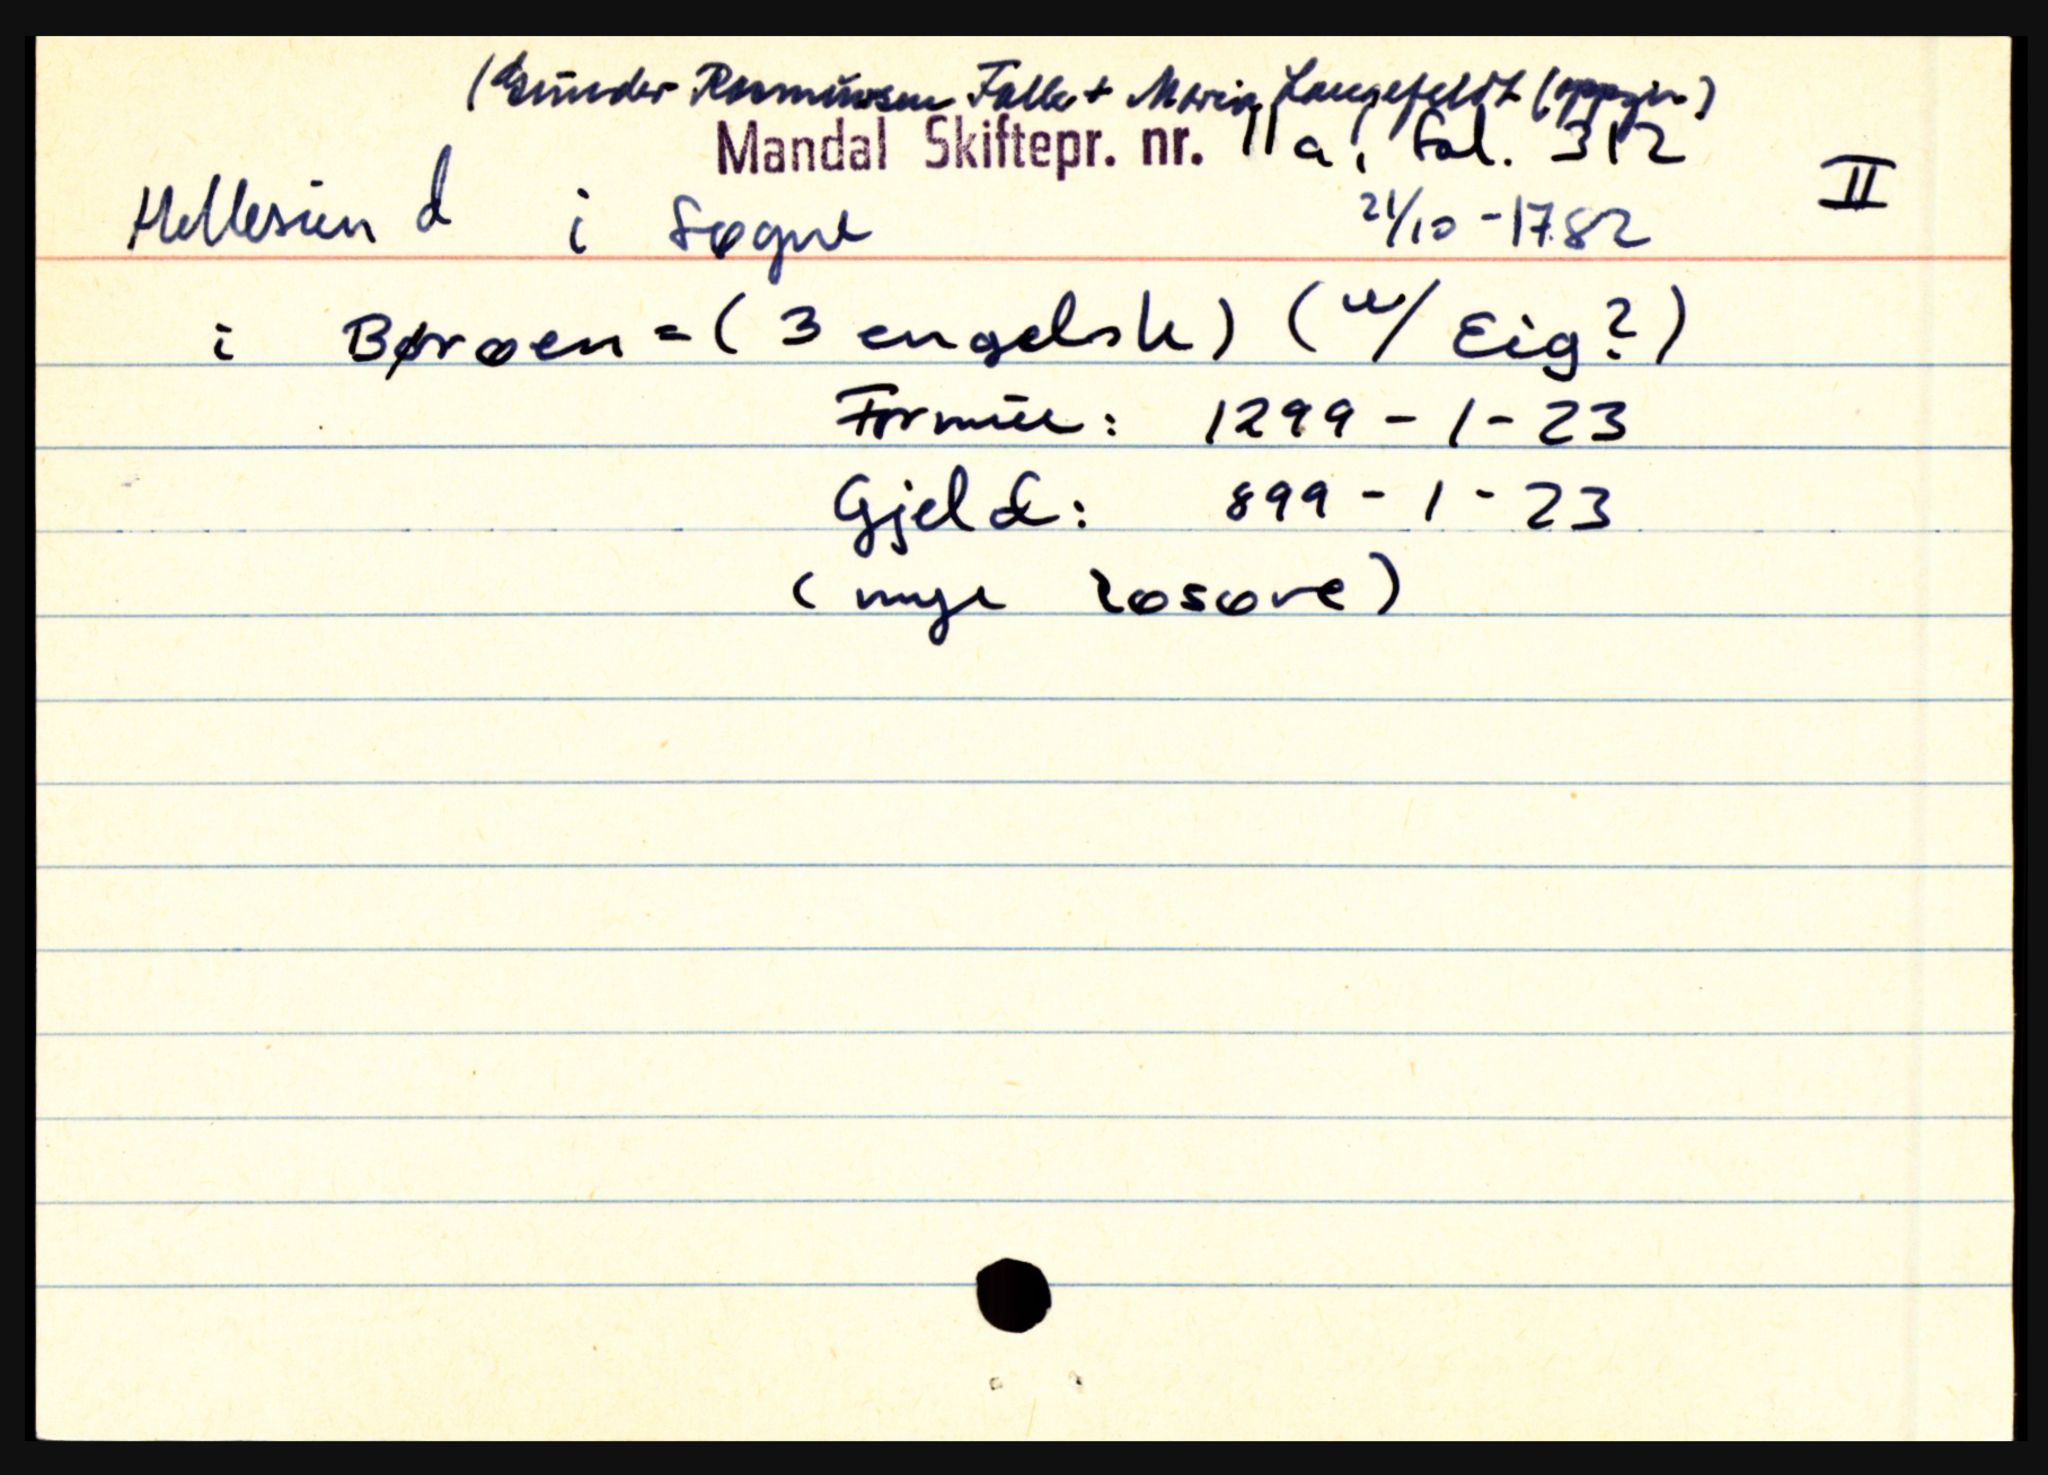 (Gunder Rasmussen Falk + Maria Langefeldt (oppgir)
Mandal Skiftepr. nr. 11 a, fol. 312
II
Hellesund i Søgne 21/10 - 1782
i Børøen = (3 engelsk) (u/ Eig?)
Formue: 1299 - 1 - 23
Gjeld: 899 - 1 - 23
(mye løsøre)